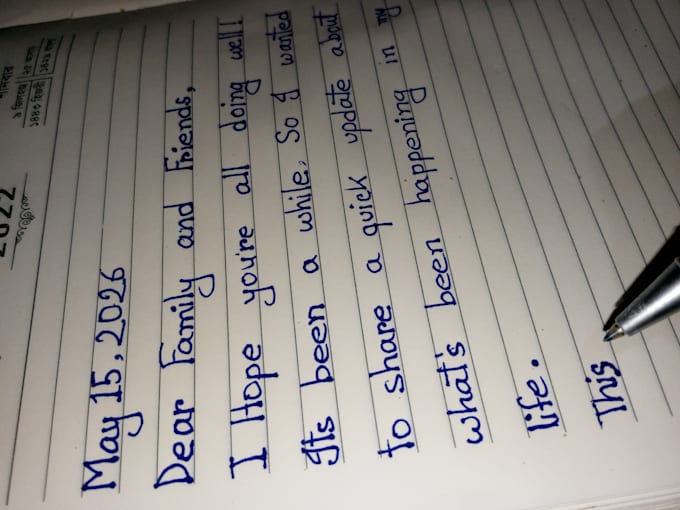 2022
May 15, 2026
Dear Family and Friends,
I Hope you're all doing well!
Its been a while. So I wanted
to share a quick update about
what's been happening in my
life.
This